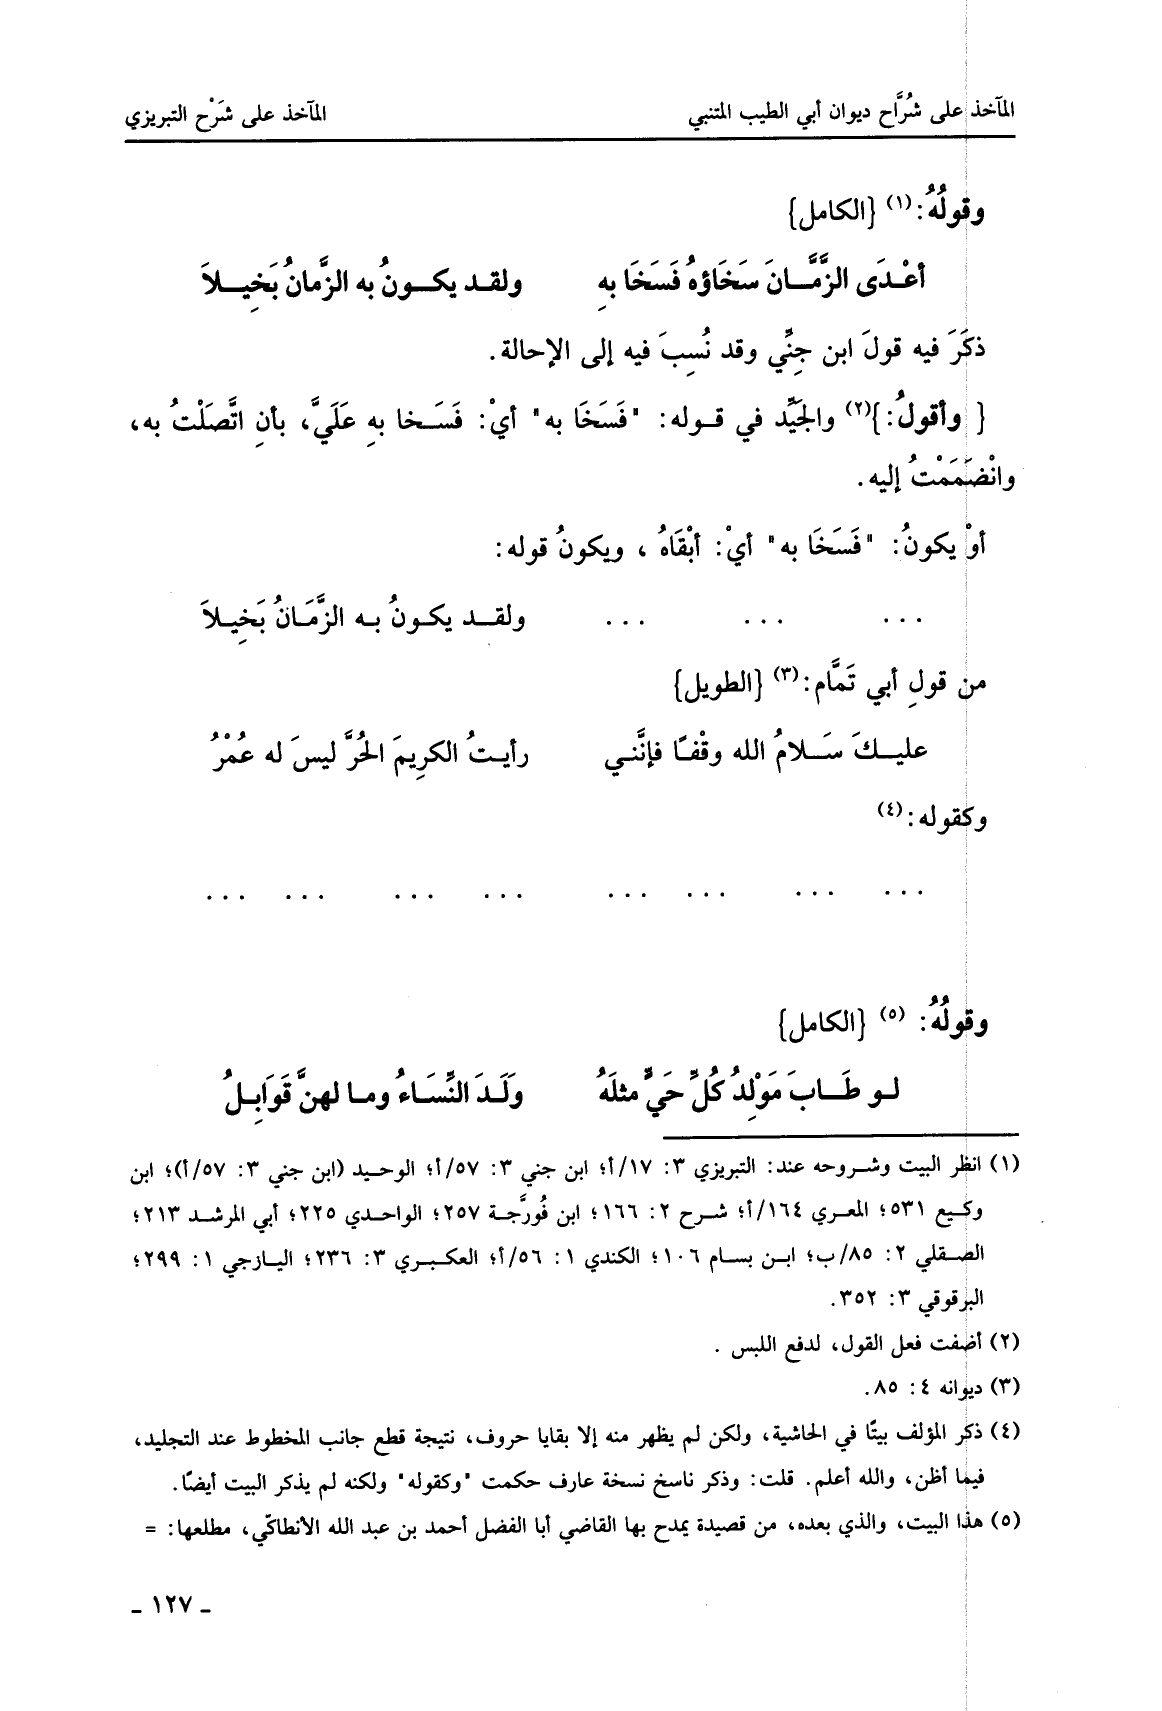 المآخذ على شُرَّاح ديوان أبي الطيب المتنبي المآخذ على شَرْح التبريزي
وقولُهُ:(١) {الكامل}
أعْـدَى الزَّمَّـانَ سَخَاؤهُ فَسَخَا بهِ ولقـد يكـونُ به الزَّمانُ بَخِيـلاَ
ذكَرَ فيه قولَ ابن جِنِّي وقد نُسِبَ فيه إلى الإحالة.
{ وأقولُ:}(٢) والجَيِّد في قـوله: "فَسَخَا به" أيْ: فَسَـخا بهِ عَلَيَّ، بأنِ اتَّصَلْتُ به،
وانْضَمَمْتُ إليه.
أوْ يكونُ: "فَسَخَا به" أيْ: أبْقَاهُ ، ويكونُ قوله:
... ... ... ولقـد يكـونُ بـه الزَّمَـانُ بَخِيـلاَ
من قولِ أبي تَمَّام:(٣) {الطويل}
عليـكَ سَـلامُ الله وقْفـًا فإنَّنـي رأيـتُ الكريمَ الحُرَّ ليسَ له عُمْرُ
وكقوله:(٤)
... ... ... ... ... ... ... ...
وقولُهُ: (٥) {الكامل}
لـو طَـابَ مَوْلِدُ كُلِّ حَيٍّ مثلَهُ وَلَدَ النِّسَـاءُ ومـا لهنَّ قَوَابِـلُ
(١) انظر البيت وشـروحه عند: التبريزي ٣: ١٧/أ؛ ابن جني ٣: ٥٧/أ؛ الوحيـد (ابن جني ٣: ٥٧/أ)؛ ابن
وكيع ٥٣١؛ المعـري ١٦٤/أ؛ شـرح ٢: ١٦٦؛ ابن فُورَّجـة ٢٥٧؛ الواحـدي ٢٢٥؛ أبي المرشـد ٢١٣؛
الصـقلي ٢: ٨٥/ب؛ ابـن بسـام ١٠٦؛ الكندي ١: ٥٦/أ؛ العكـبري ٣: ٢٣٦؛ اليـازجي ١: ٢٩٩؛
البرقوقي ٣: ٣٥٢.
(٢) أضفت فعل القول، لدفع اللبس .
(٣) ديوانه ٤: ٨٥.
(٤) ذكر المؤلف بيتًا في الحاشية، ولكن لم يظهر منه إلا بقايا حروف، نتيجة قطع جانب المخطوط عند التجليد،
فيما أظن، والله أعلم. قلت: وذكر ناسخ نسخة عارف حكمت "وكقوله" ولكنه لم يذكر البيت أيضًا.
(٥) هذا البيت، والذي بعده، من قصيدة يمدح بها القاضي أبا الفضل أحمد بن عبد الله الأنطاكّي، مطلعها: =
ـ ١٢٧ ـ